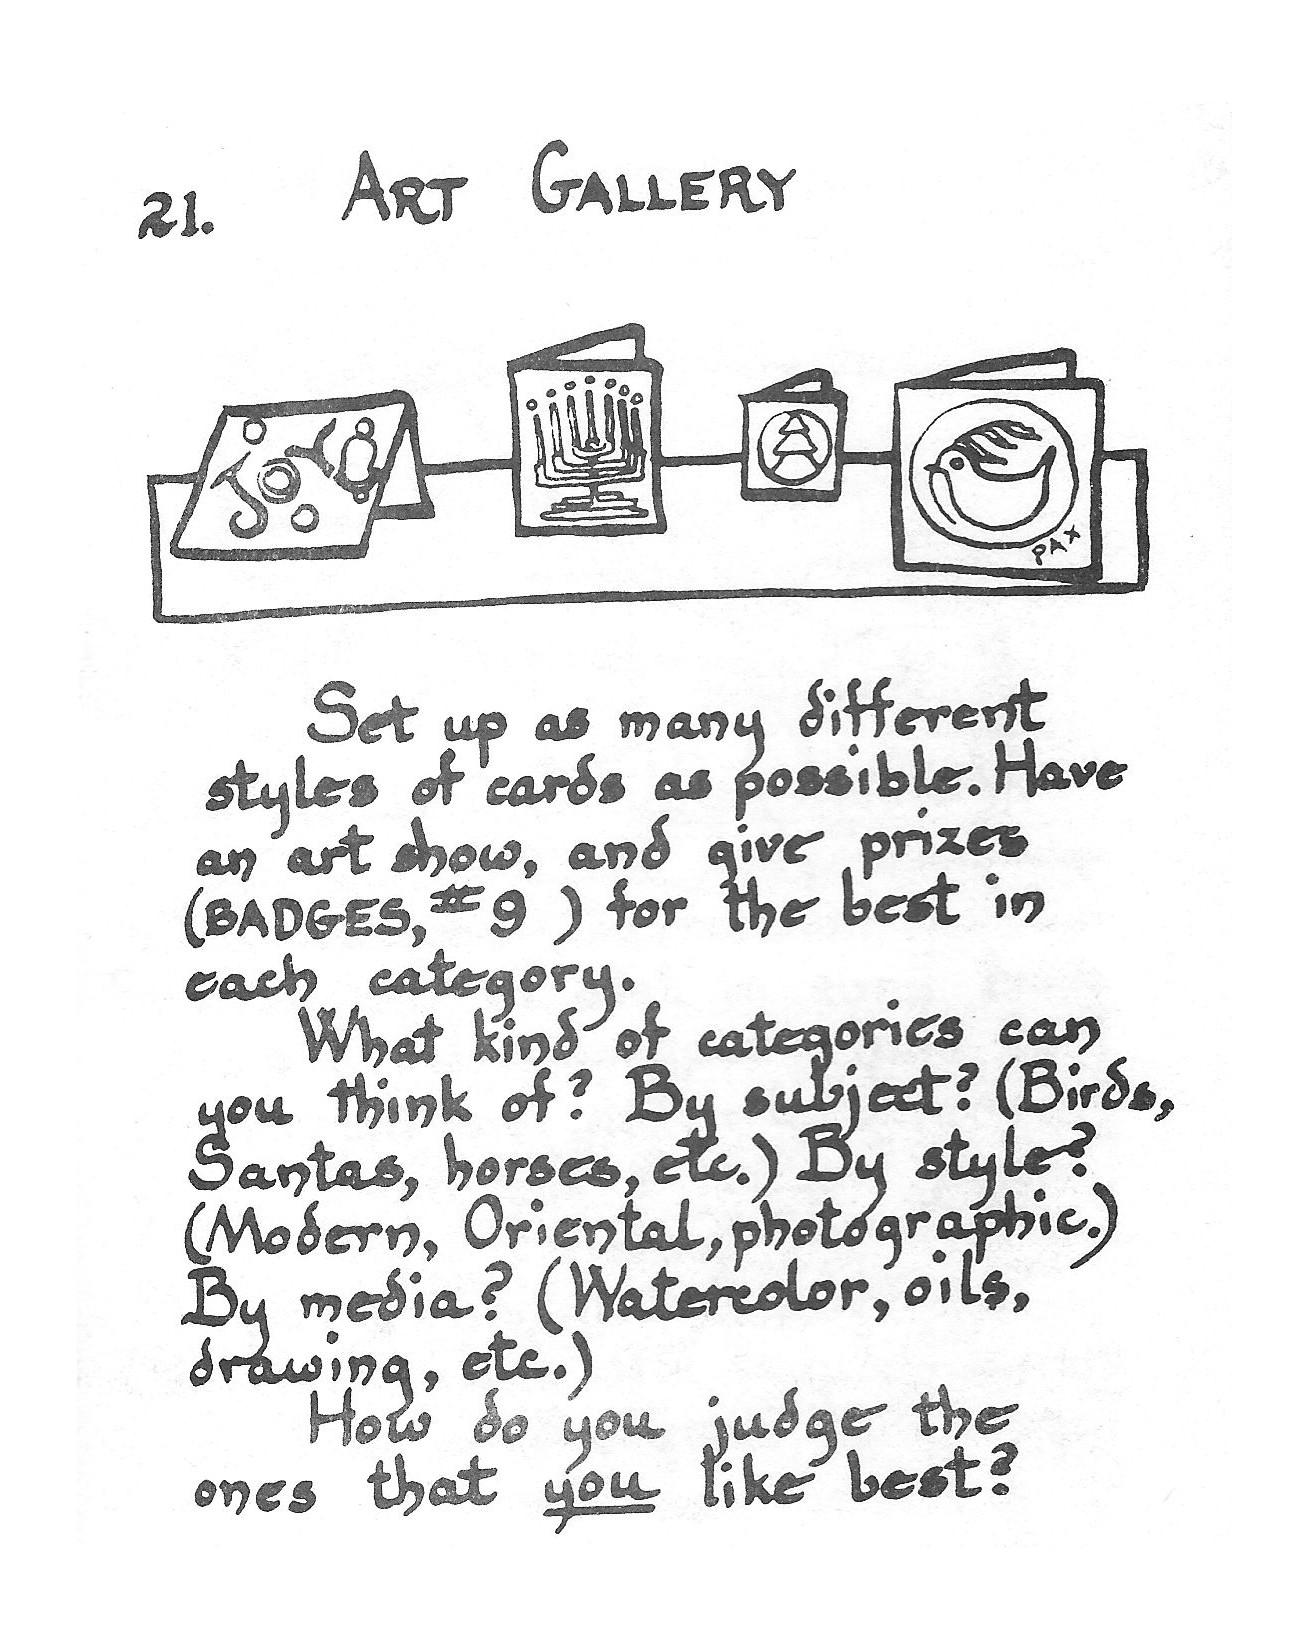 21. ART GALLERY
JOY
PAX
Set up as many different
styles of cards as possible. Have
an art show, and give prizes
(BADGES, #9 ) for the best in
each category.
What kind of categories can
you think of? By subject? (Birds,
Santas, horses, etc.) By style?
(Modern, Oriental, photographic.)
By media? (Watercolor, oils,
drawing, etc.)
How do you judge the
ones that you like best?